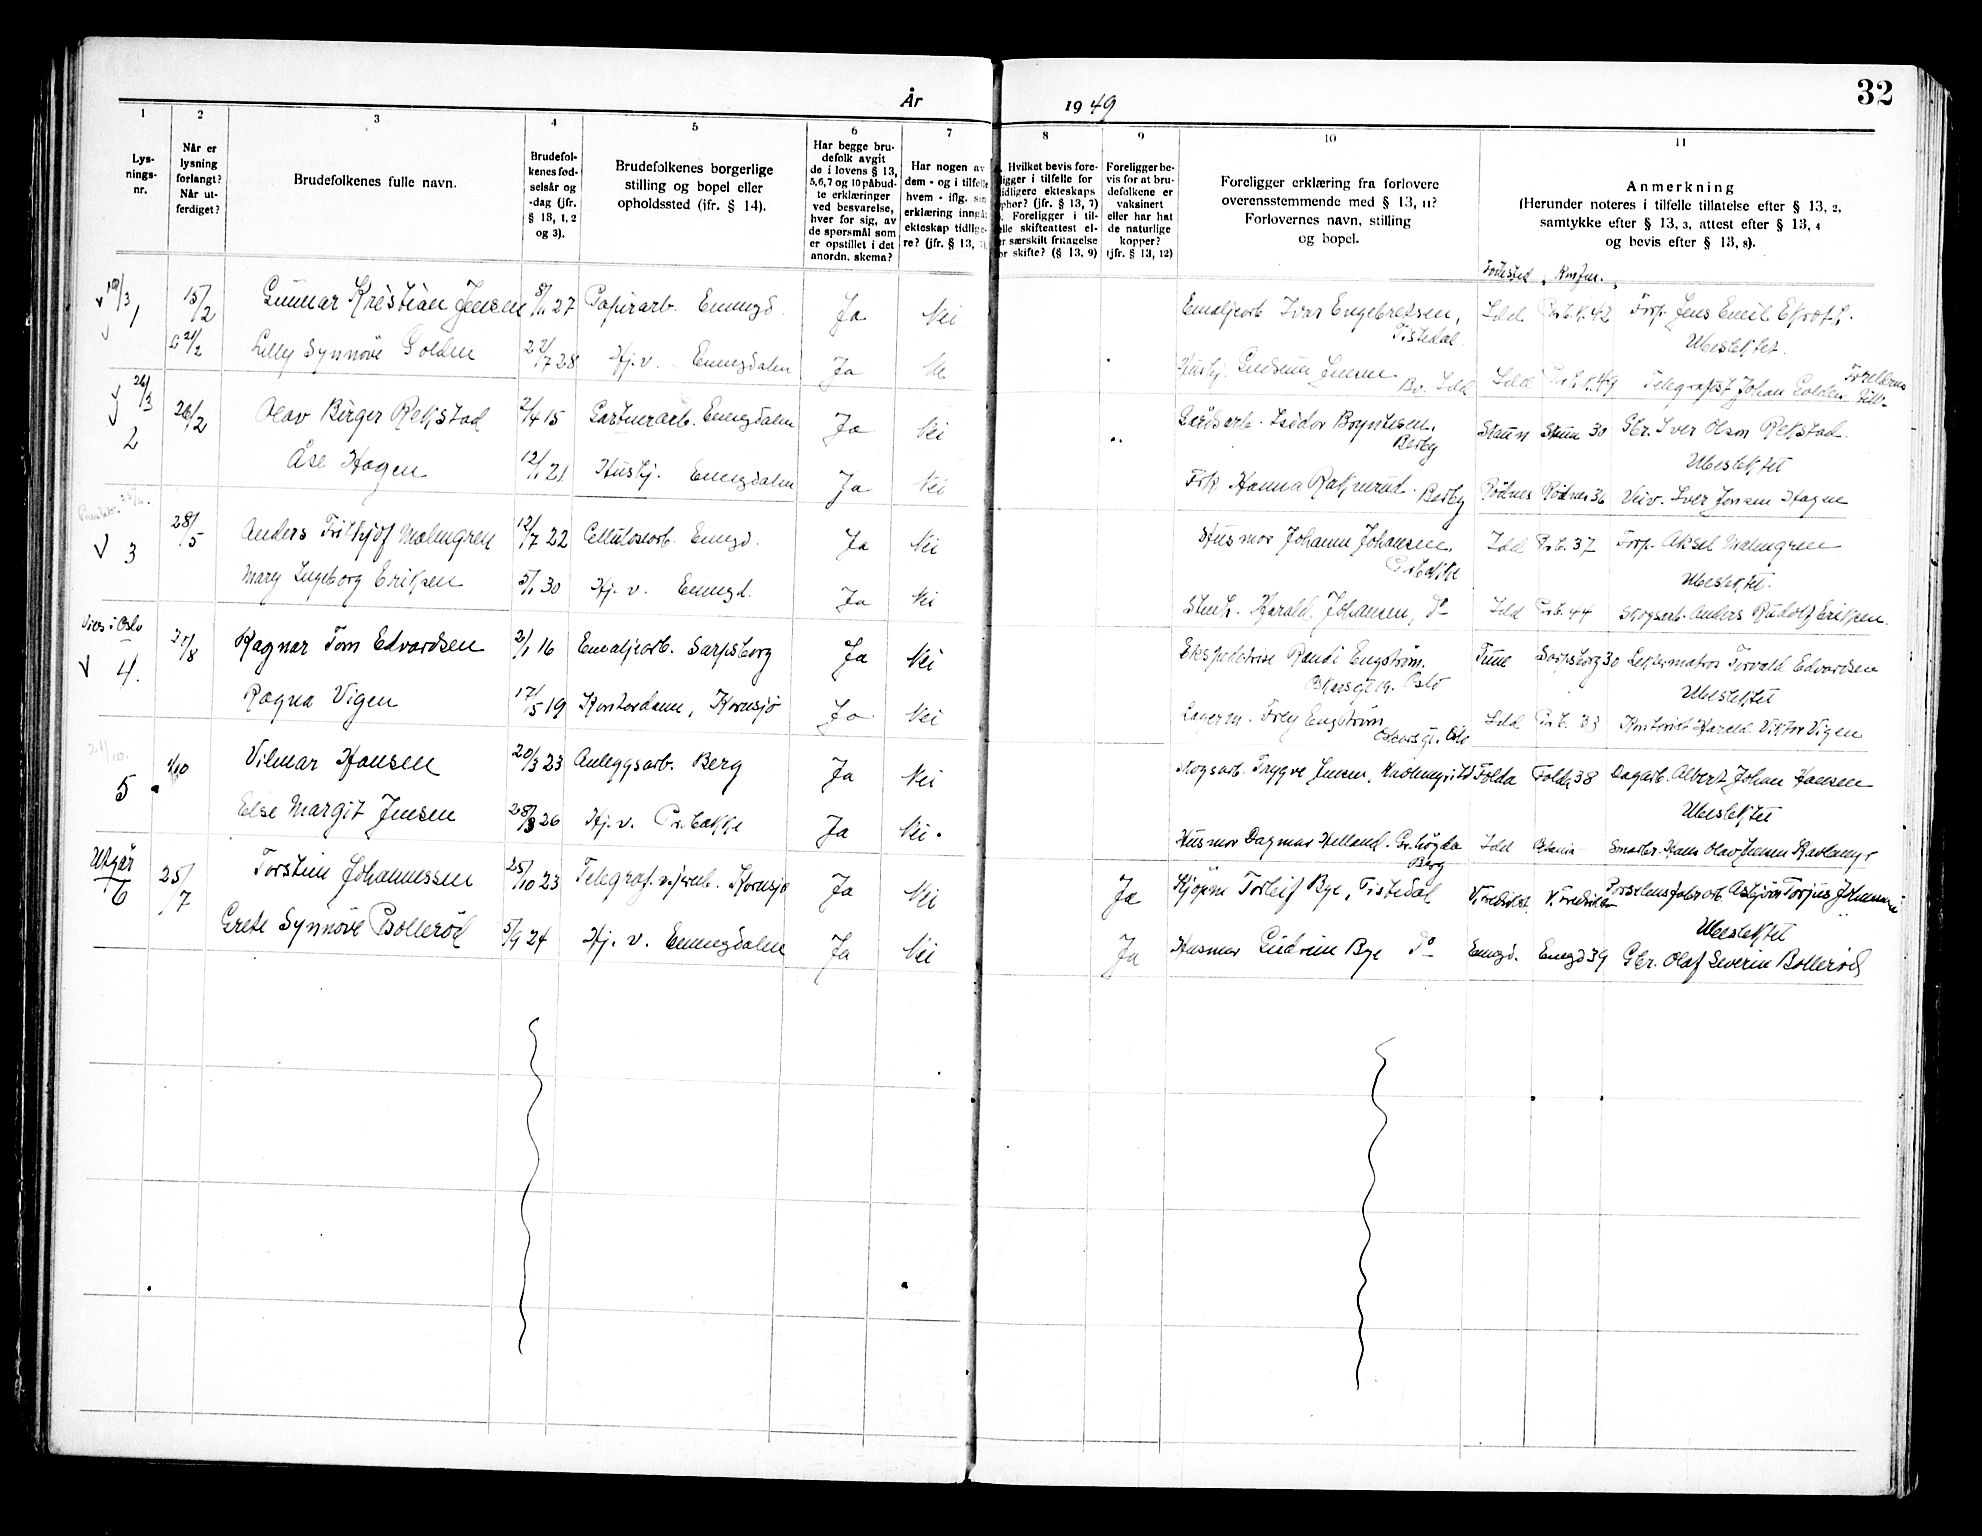 32
År 1949
1 2 3 4 5 6 7 8 9 10 11
Lys-
nings-
nr.
Når er
lysning
forlangt?
Når ut-
ferdiget?
Brudefolkenes fulle navn.
Brudefol-
kenes fød-
selsår og
-dag (jfr.
§ 13, 1, 2
og 3).
Brudefolkenes borgerlige
stilling og bopel eller
opholdssted (ifr. § 14).
Har begge bru-
defolk avgit
de i lovens § 13,
5,6,7 og 10 påbud-
te erklæringer
ved besvarelse,
hver for sig, av
de spørsmål som
er opstillet i det
anordn. skema?
Har nogen av
dem - og i tilfelle
hvem - iflg. sin
erklæring inngå
ekteskap tidlige-
re? (jfr. § 13,
Hvilket bevis fore-
ligger i tilfelle for
tidligere ekteskaps
ophør? (jfr. § 13, 7)
Foreligger i til-
felle skifteattest el-
er særskilt fritagelse
for skifte? (§ 13, 9)
Foreligger be-
vis for at bru-
defolkene er
vaksinert
eller har hat
de naturlige
kopper?
(jfr. § 13, 12)
Foreligger erklæring fra forlovere
overensstemmende med § 13, 11?
Forlovernes navn, stilling
og bopel.
Anmerkning
(Herunder noteres i tilfelle tillatelse efter § 13, 2,
samtykke efter § 13, 3, attest efter § 13, 4
og bevis efter § 13, 8).
Fødested Konfm.
1 15/2 Gunnar Kristian Jensen 8/11 27 Papirarb. Enningd. Ja Nei Emaljearb Ivar Engebretsen, Tistedal. Idd 42 Forp. Jens Emil Ekroth.
Ubeslektet.
21/2 Lilly Synnöve Golden 22/7 28 Hj. v. Enningdalen Ja Gudrun Jensen Idd Idd 49 Telegrafist Johan Golden
26/3
2 26/2 Olav Birger Rekstad 2/4 15 Gartnerarb. Enningdalen Ja Nei Gårdsarb. Isidor Boyntesen. Berby Staun Staun 30 Gbr. Iver Olsen Rekstad.
Ubeslektet
Åse Hagen 12/1 21 Hushj. Enningdalen Ja Nei Frk Hanna Raknerud. Berby Rödnes Rödnes 36 Iver Jensen Hagne
V 3 28/5 Anders Frithjof Malmgren 12/7 22 Cellulosearb. Enningd. Ja Nei Husmor Johanne Johansen, Idd 37 Forp. Aksel Malmgren
Ubeslektet.
Mary Ingeborg Eriksen 5/1 30 Hj. v. Enningd. Ja Nei Harald Johansen, do Idd 44 Skogsarb. Anders Rudolf Eriksen.
Vies i Oslo
V 4. Ragnar Tom Edvardsen 2/1 16 Emaljearb. Sarpsborg Ja Nei Ekspeditrise Randi Engström. Oslo Tune Sarpsborg 30 Torvald Edvardsen
Ubeslektet
Ragna Vigen 17/5 19 Kontordame, Kornsjö Ja Nei Lagerm. Frey Engström Idd 33 Kontorist Harald Viktor Vigen
5 1/10 Vilmar Hansen 20/3 23 Anleggsarb. Berg Ja Nei Skogsarb. Trygve Jensen, Folda Folda 38 Dagarb. Albert Johan Hansen
Ubeslektet
Else Margit Jensen 28/3 26 Hj. v. Pr.bakke Ja Nei. Husmor Dagmar Helland. Berg Idd Småbr. Hans Olav Jensen
Utgår
6 25/7 Torstein Johannessen 25/10 23 Telegraf. v. jernb. Kornsjö Ja Nei Ja Kjöpm Torleif Bye, Tistedal V. Fredrikst. Porselensfabr.arb. Asbjörn Torjus Johannessen
Ubeslektet
Grete Synnöve Bolleröd 5/9 24 Hj. v. Enningdalen Ja Nei Ja Husmor Gudrun Bye do Enngd. Enngd 39 Gbr. Olaf Severin Bolleröd